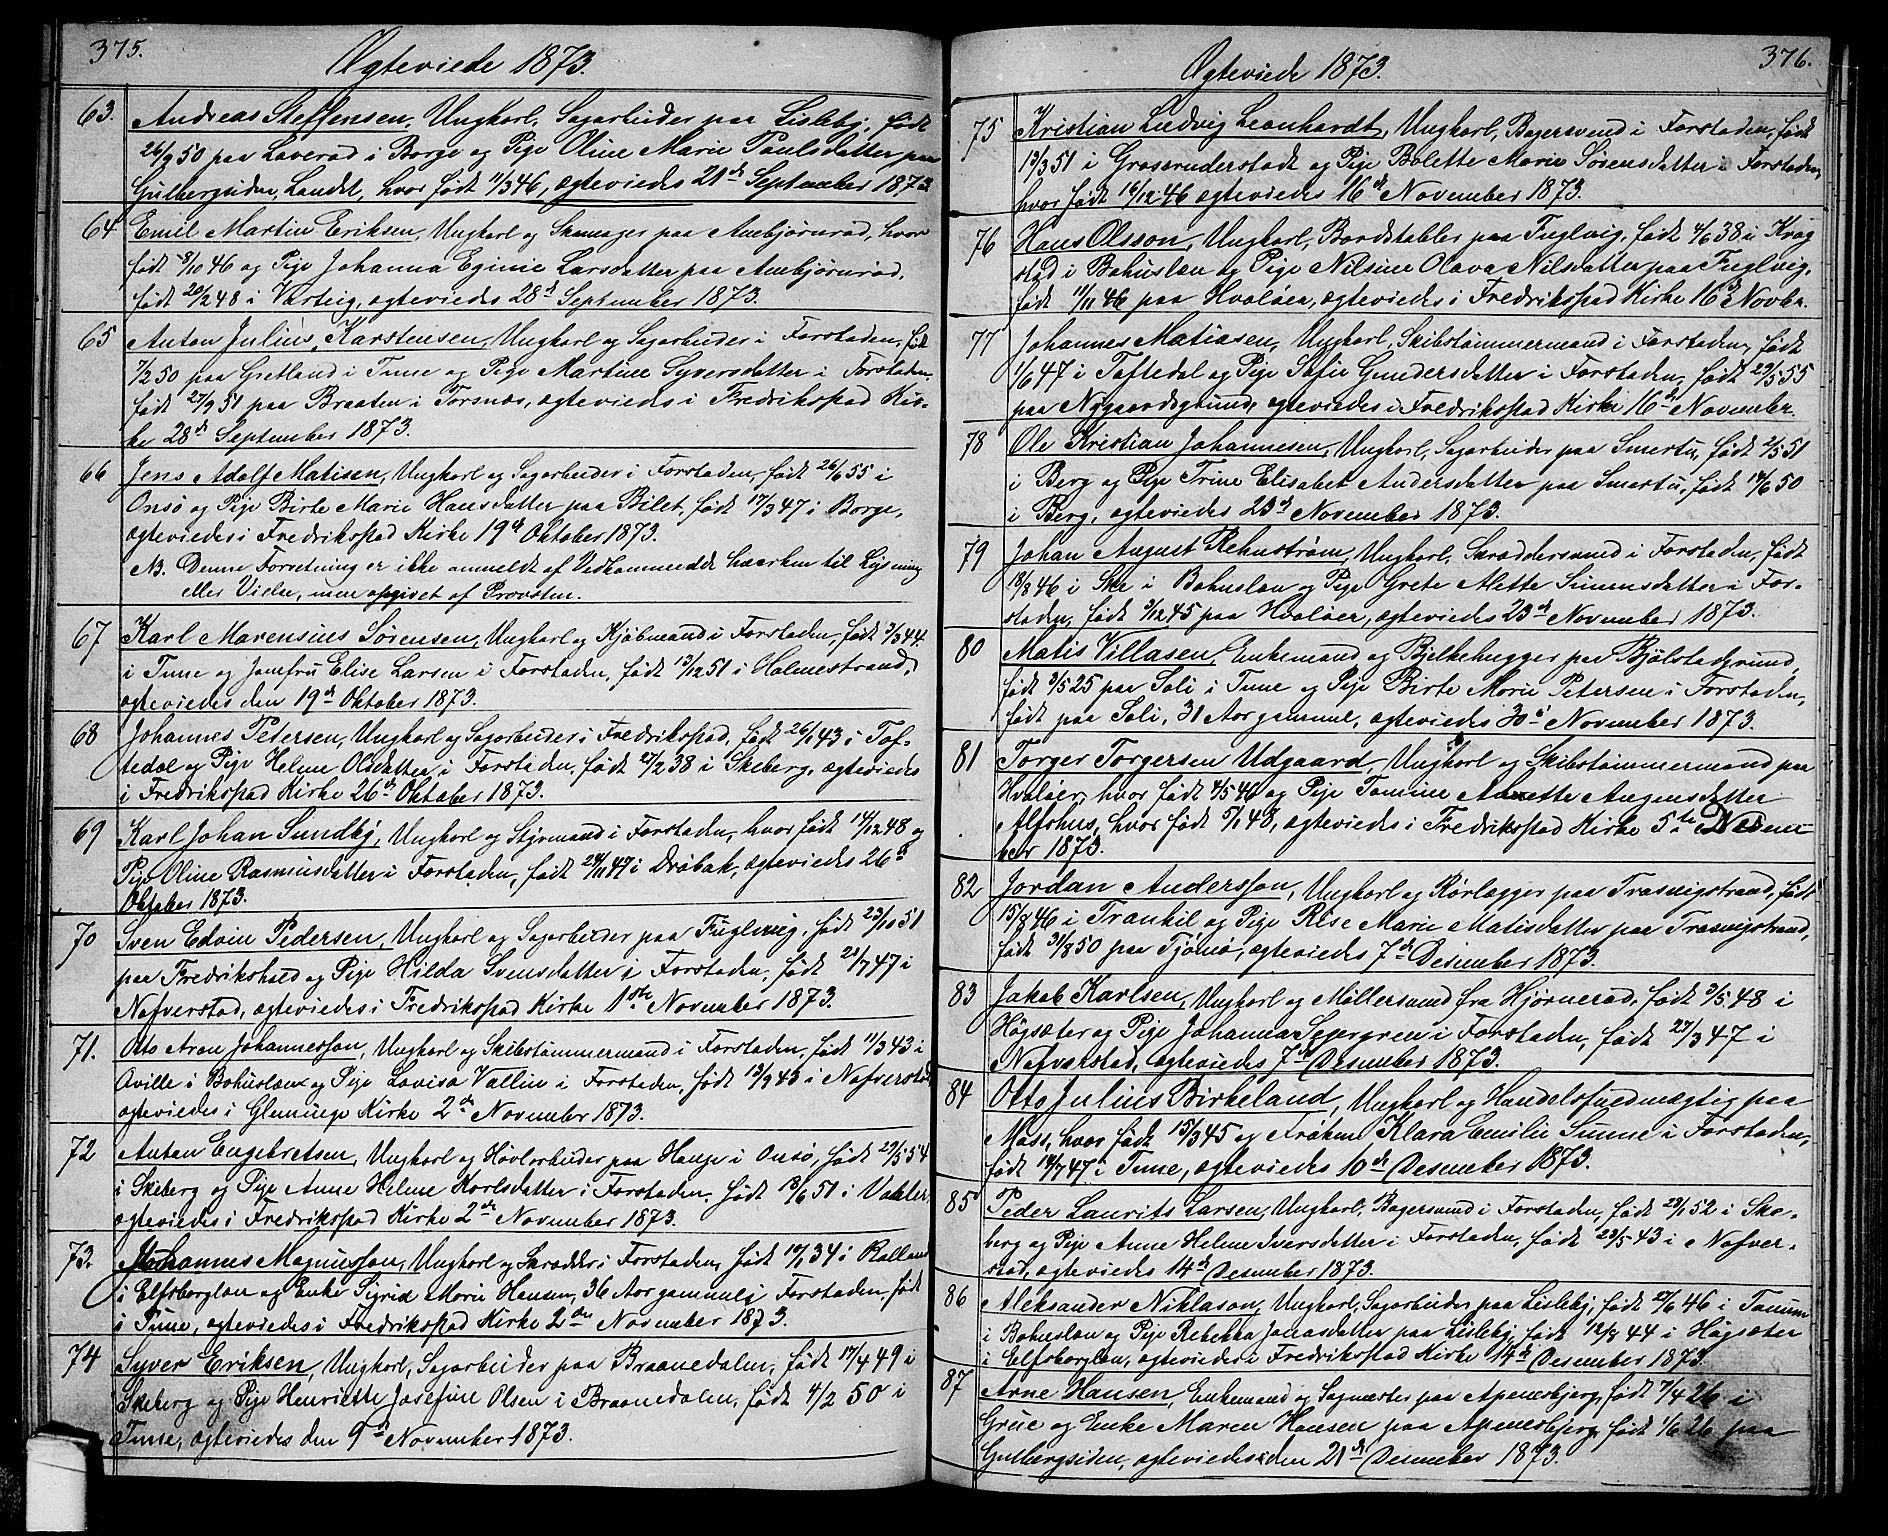 375.
Ægteviede 1873.
63. Andreas Steffensen, Ungkarl, Sagarbeider paa Lisleby, født
26/9 50 paa Laverød i Borge og Pige Oline Marie Paulsdatter paa
Gulbergsiden, Landet, hvor født 11/3 46, ægteviedes 21de September 1873.
64 Emil Martin Eriksen, Ungkarl og Skomager paa Ambjørnrød, hvor
født 8/10 46 og Pige Johanna Eginie Larsdatter paa Ambjørnrød,
født 20/2 48 i Varteig, ægteviedes 28de September 1873.
65 Anton Julius Karstensen, Ungkarl og Sagarbeider i Forstaden, født
7/2 50 paa Gretland i Tune og Pige Martine Syversdatter i Forstaden,
født 27/9 51 paa Braaten i Torsnæs, ægteviedes i Fredrikstad Kir-
ke 28de September 1873.
66 Jens Adolf Matisen, Ungkarl og Sagarbeider i Forstaden, født 26/6 55 i
Onsø og Pige Birte Marie Hansdatter paa Bilet, født 17/3 47 i Borge,
ægteviedes i Fredrikstad Kirke 19de Oktober 1873.
NB. Denne Forretning er ikke anmeldt af Vedkommende hverken til Lysning
eller Vielse, men opgivet af Provsten.
67 Karl Marensius Sørensen, Ungkarl og Kjøbmand i Forstaden, født 3/3 44
i Tune og Jomfru Elise Larsen i Forstaden, født 13/12 51 i Holmestrand,
ægteviedes den 19de Oktober 1873.
68 Johannes Petersen, Ungkarl og Sagarbeider i Fredrikstad, født 26/1 43 i Tof-
tedal og Pige Helene Olsdatter i Forstaden, født 27/2 38 i Skeberg, ægteviedes
i Fredrikstad Kirke 26de Oktober 1873.
69 Karl Johan Sundby, Ungkarl og Styrmand i Forstaden, hvor født 14/12 48 og
Pige Oline Rasmusdatter i Forstaden, født 24/11 47 i Drøbak, ægteviedes 26de
Oktober 1873.
70 Sven Edvin Pedersen, Ungkarl og Sagarbeider paa Fuglevig, født 23/10 51
paa Fredrikshald og Pige Hilda Svensdatter i Forstaden, født 21/7 47 i
Nafverstad, ægteviedes i Fredrikstad Kirke 1ste November 1873.
71. Otto Aron Johannesson, Ungkarl og Skibstømmermand i Forstaden, født 11/3 43 i
Aville i Bohuslæn og Pige Lovisa Vallin i Forstaden, født 13/9 43 i Nafverstad,
ægteviedes i Glemminge Kirke 2den November 1873.
72 Anton Engebretsen, Ungkarl og Høvlarbeider paa Hauge i Onsø, født 29/5 54
i Skeberg og Pige Anne Helene Karlsdatter i Forstaden, født 18/6 51 i Valdler,
ægteviedes i Fredrikstad Kirke 2den November 1873.
73. Johannes Magnusson, Ungkarl og Skrædder i Forstaden, født 10/1 34 i
i Elfsborglæn og Enke Sigrid Marie Hansen, 36 Aar gammel i Forstaden, født
i Tune, ægteviedes i Fredrikstad Kirke 2den November 1873.
74 Syver Eriksen, Ungkarl, Sagarbeider paa Braanedalen, født 17/4 49 i
Skeberg og Pige Henriette Josefine Olsen i Braanedalen, født 4/2 50 i
Tune, ægteviedes den 9de November 1873.
376.
Ægteviede 1873.
75 Kristian Ludvig Leonhardt, Ungkarl, Bagersvend i Forstaden, født
13/3 51 i Grossruderstadt og Pige Bolette Marie Sørensdatter i Forstaden,
hvor født 16/12 46 ægteviedes 16de November 1873.
76 Hans Olsson, Ungkarl, Bordstabler paa Fuglvig, født 4/6 38 i Krog
stad i Bohuslæn og Pige Nilsine Olava Nilsdatter paa Fuglvig,
født 11/11 46 paa Hvaløer, ægteviedes i Fredrikstad Kirke 16de Novbr.
77 Johannes Matiasen, Ungkarl, Skibstømmermand i Forstaden, født
1/6 47 i Toftedal og Pige Sofie Gundersdatter i Forstaden, født 29/5 55
paa Nygaardsgrund, ægteviedes i Fredrikstad Kirke 16de November.
78 Ole Kristian Johannesen, Ungkarl, Sagarbeider paa Smertu, født 2/5 51
i Berg og Pige Trine Elisabet Andersdatter paa Smertu, født 14/6 50
i Berg, ægteviedes 23de November 1873.
79 Johan August Rehnstrøm, Ungkarl, Skræddersvend i Forstaden, født
18/8 46 i Ske i Bohuslæn og Pige Grete Alette Simensdatter i For-
staden, født 3/12 45 paa Hvaløer, ægteviedes 23de November 1873.
80 Matis Villasen, Enkemand og Bjelkehugger paa Bjølstadgrund,
født 3/5 25 paa Soli i Tune og Pige Birte Marie Petersen i Forstaden,
født paa Soli, 31 Aar gammel, ægteviedes 30de November 1873.
81 Torger Torgersen Udgaard, Ungkarl og Skibstømmermand paa
Hvaløer, hvor født 4/5 46 og Pige Tomine Anette Augensdatter
Alfshus, hvor født 5/1 48, ægteviedes i Fredrikstad Kirke 5te Desem-
ber 1873.
82 Jordan Andersson, Ungkarl og Rørlægger paa Trosvigstrand, født
15/8 46 i Trankil og Pige Rise Marie Matisdatter paa Trosvigstrand,
født 31/8 50 paa Tjømø, ægteviedes 7de Desember 1873.
83 Jakob Karlsen, Ungkarl og Møllersvend fra Hjørnerød, født 3/5 48 i
Høgsæter og Pige Johanna Segergren i Forstaden, født 27/3 47 i
Nafverstad, ægteviedes 7de Desember 1873.
84 Otto Julius Birkeland, Ungkarl og Handelsfuldmægtig paa
Moss, hvor født 15/3 45 og Frøken Klara Emilie Sunne i Forstaden,
født 14/7 47 i Tune, ægteviedes 10de Desember 1873.
85 Peder Laurits Larsen, Ungkarl, Bagersvend i Forstaden, født 23/1 52 i Ske-
berg og Pige Anne Helene Iversdatter i Forstaden, født 29/5 43 i Nafver-
stad, ægteviedes 14de Desember 1873.
86 Aleksander Niklason, Ungkarl, Sagarbeider paa Lisleby, født 27/6 46 i Tanum
i Bohuslæn og Pige Rebekka Jonasdatter paa Lisleby, født 12/8 44 i Høgsæter
i Elfsborglæn, ægteviedes i Fredrikstad Kirke 14de Desember 1873.
87 Arne Hansen, Enkemand og Sagmester paa Apenesbjerg, født 7/4 26 i
Grue og Enke Maren Hansen paa Apenesbjerg, født 1/6 26 paa
Gulbergsiden, ægteviedes den 21de Desember 1873.